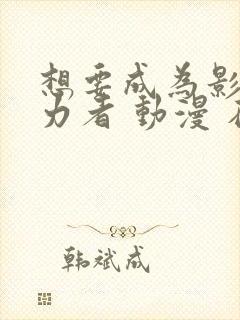 想要成為影
力者 動漫
韩斌成